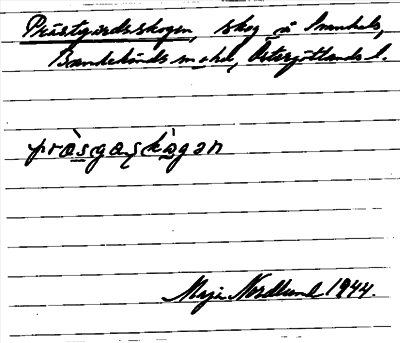 Prästgårdsskogen, skog å Svanhals,
Bandekinds m o hd, Östergötlands l.
pràsgaskògən
Maja Nordlund 1944.